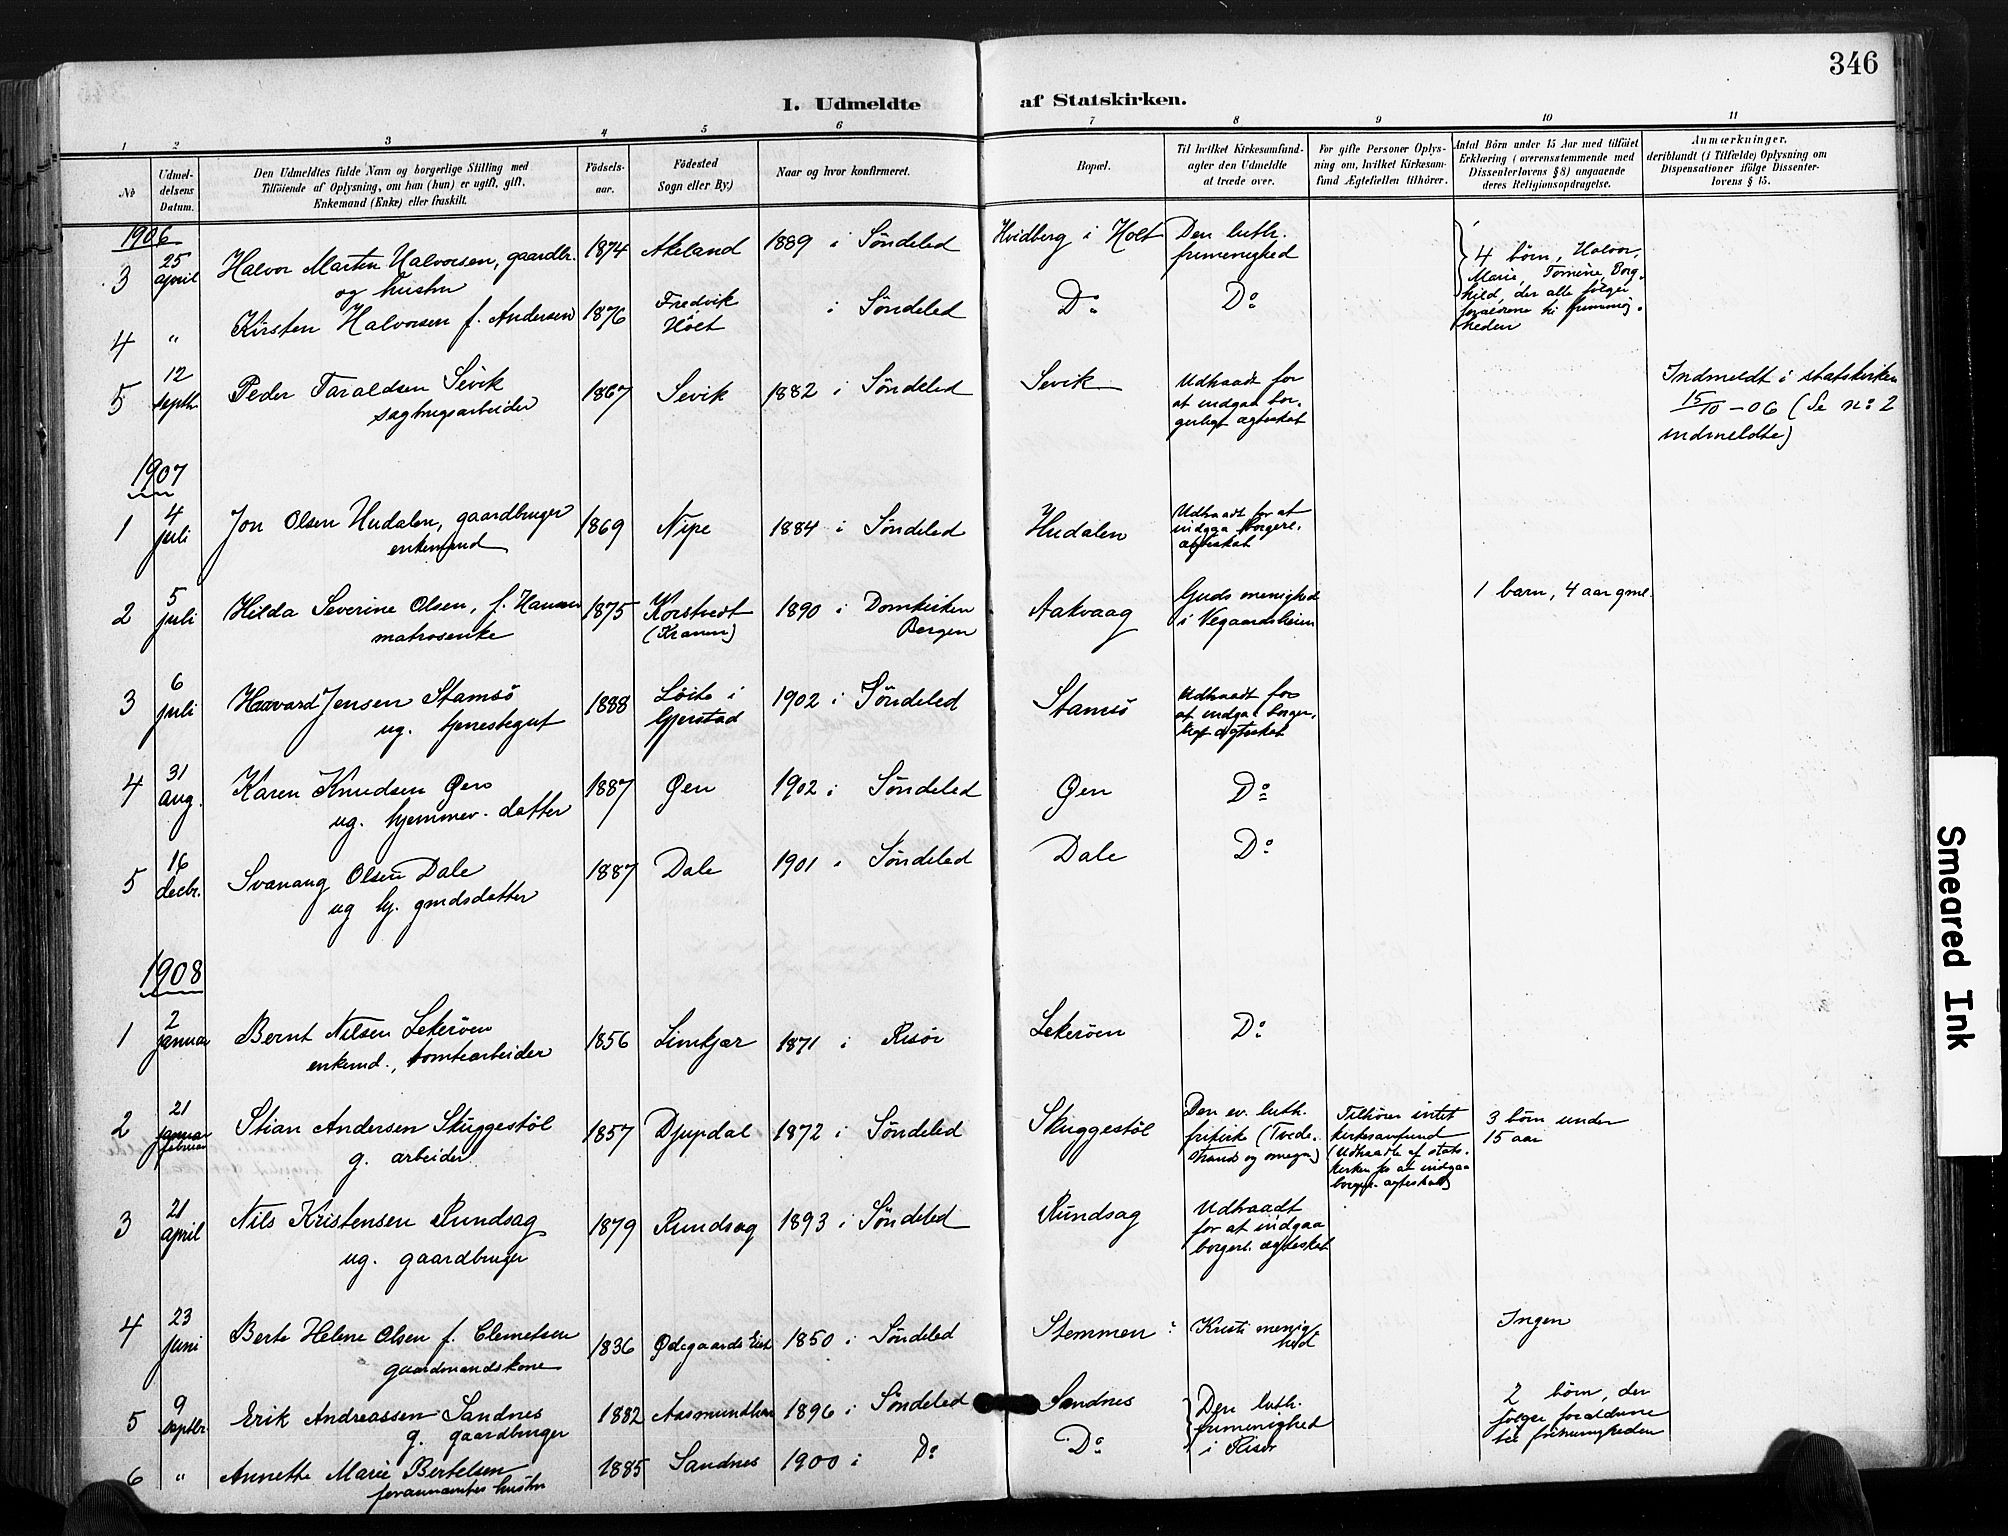 346
I. Udmeldte af Statskirken.
1 2 3 4 5 6 7 8 9 10 11
No
Udmel-
delsens
Datum.
Den Udmeldtes fulde Navn og borgerlige Stilling med
Tilføiende af Oplysning, om han (hun) er ugift, gift,
Enkemand (Enke) eller fraskilt.
Fødsels-
aar.
Fødested
Sogn eller By.)
Naar og hvor konfirmeret.
Bopæl.
Til hvilket Kirkesamfund-
agter den Udmeldte
at træde over.
For gifte Personer Oplys-
ning om, hvilket Kirkesam-
fund Ægtefællen tilhører.
Antal Børn under 15 Aar med tilføiet
Erklæring (overensstemmende med
Dissenterlovens § 8) angaaende
deres Religionsopdragelse.
Anmærkninger,
deriblandt (i Tilfælde) Oplysning om
Dispensationer ifølge Dissenter-
lovens § 15.
1906
3 25 april Halvor Marten Halvorsen, gaardbr. 1874 Akeland 1889 i Søndeled Hvidberg i Holt Den luth. frimenighed 4 børn, Halvor,
og hustru Marie, Tomine, Borg-
hild, der alle følger
forældrene til frimenig-
heden
4 " Kirsten Halvorsen f. Andersen 1876 Fredvik Holt i Søndeled Do Do
5 12 septbr. Peder Taraldsen Sevik 1867 Sevik 1882 i Søndeled Sevik Udtraadt for
sagbrugsarbeider at indgaa bor-
gerligt ægteskab
Indmeldt i statskirken
15/10 - 06 (Se no 2
indmeldte)
1907
1 4 juli Jon Olsen Hudalen, gaardbruger 1869 Nipe 1884 i Søndeled Hudalen Udtraadt for at
enkemand indgaa borgerl.
ægteskab
2 5 juli Hilda Severine Olsen, f. Hansen 1875 Korstvedt 1890 i Domkirken Aakvaag Guds menighed 1 barn, 4 aar gml.
matrosenke Bergen i Vegaardsheien
3 6 juli Haavard Jensen Stamsø 1888 Løite i 1902 i Søndeled Stamsø Udtraadt for
ug. tjenestegut Gjerstad at indgaa borger-
ligt ægteskab
4 31 aug. Karen Knudsen Øen 1887 Øen 1902 i Søndeled Øen Do
ug. hjemmev. datter
5 16 decbr. Svanaug Olsen Dale 1887 Dale 1901 i Søndeled Dale Do
ug hj. gmdsdatter
1908
1 2 januar Bernt Nilsen Lekerøen 1856 Limkjær 1871 i Risør Lekerøen Do
enkemd., tomtearbeider
2 21 januar februar Stian Andersen Skuggestøl 1857 Djupdal 1872 i Søndeled Skuggestøl Den ev. luth. Tilhører intet 3 børn under
g. arbeider frikirk (Tvede- kirkesamfund 15 aar
strand og omegn) (Udtraadte af stats-
kirken for at indgaa
borger. ægteskab)
3 21 april Nils Kristensen Rundsag 1879 Rundsag 1893 i Søndeled Rundsag Udtraadt
ug. gaardbruger for at indgaa
borgerl. ægteskab
4 23 juni Berte Helene Olsen f. Clemetsen 1836 Ødegaards Eiet 1850 i Søndeled Stemmen Kristi menig- Ingen
gaardmandskone hed
5 9 septbr. Erik Andreassen Sandnes 1882 Aasmundhav 1896 i Søndeled Sandnes Den luth. 2 børn, der
g. gaardbruger frimenighed følger forældrene
i Risør til frimenigheden
6 " Annette Marie Bertelsen 1885 Sandnes 1900 i Do Do
forannævntes hustru
Smeared Ink